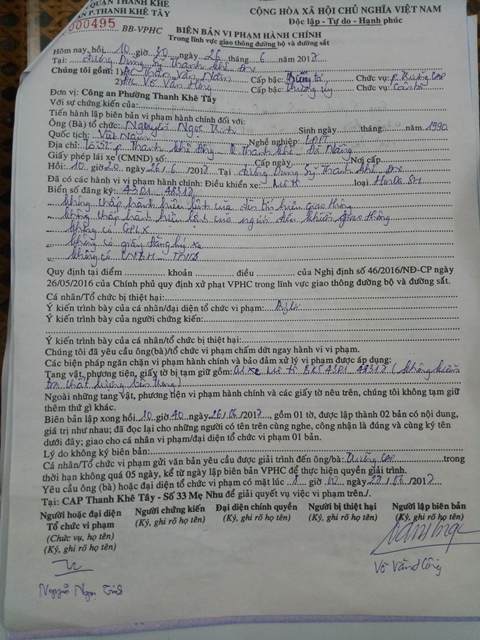 QUẬN THANH KHÊ
A P.THANH KHÊ TÂY
CỘNG HÒA XÃ HỘI CHỦ NGHĨA VIỆT NAM
Độc lập - Tự do - Hạnh phúc
000495
BB-VPHC
BIÊN BẢN VI PHẠM HÀNH CHÍNH
Trong lĩnh vực giao thông đường bộ và đường sắt
Hôm nay, hồi 10 giờ 30 ngày 26 tháng 6 năm 2017
Tại: đường Dũng Sỹ Thanh Khê, ĐN
Chúng tôi gồm: 1) Trần Văn Cấp bậc: Chức vụ: P. Trưởng CAP
2) Võ Văn Công Cấp bậc: Thượng úy Chức vụ: Cán bộ
Đơn vị: Công an Phường Thanh Khê Tây
Với sự chứng kiến của:
Tiến hành lập biên bản vi phạm hành chính đối với:
Ông (Bà) tổ chức: Nguyễn Ngọc Tính Sinh ngày tháng năm 1990
Quốc tịch: Việt Nam Nghề nghiệp: LĐPT
Địa chỉ: Tổ 51 P. Thanh Khê Đông, Q. Thanh Khê, Đà Nẵng
Giấy phép lái xe (CMND) số: Cấp ngày Nơi cấp
Hồi: 10 giờ 20 26/6/2017 Tại đường Dũng Sỹ Thanh Khê, ĐN
Đã có các hành vi vi phạm hành chính: Điều khiển xe: Mô tô loại Honda SH
Biển số đăng ký: 43D1 - 48312
không chấp hành hiệu lệnh của đèn tín hiệu giao thông
không chấp hành hiệu lệnh của người điều khiển giao thông
không có GPLX
không có giấy đăng ký xe
không có
Quy định tại điểm khoản điều của Nghị định số 46/2016/NĐ-CP ngày
26/05/2016 của Chính phủ quy định xử phạt VPHC trong lĩnh vực giao thông đường bộ và đường sắt.
Cá nhân/Tổ chức bị thiệt hại:
Ý kiến trình bày của cá nhân/đại diện tổ chức vi phạm:
Ý kiến trình bày của người chứng kiến:
Ý kiến trình bày của cá nhân/tổ chức bị thiệt hại:
Chúng tôi đã yêu cầu ông(bà)/tổ chức vi phạm chấm dứt ngay hành vi vi phạm.
Các biện pháp ngăn chặn vi phạm hành chính và bảo đảm xử lý vi phạm được áp dụng:
Tang vật, phương tiện, giấy tờ bị tạm giữ gồm: 01 xe mô tô BKS 43D1 48312 (không kiểm
tra chất lượng bên trong)
Ngoài những tang vật, phương tiện vi phạm hành chính và các giấy tờ nêu trên, chúng tôi không tạm giữ
thêm thứ gì khác.
Biên bản lập xong hồi 10 giờ 40 ngày 26/06/2017 gồm 01 tờ, được lập thành 02 bản có nội dung,
giá trị như nhau; đã đọc lại cho những người có tên trên cùng nghe, công nhận là đúng và cùng ký tên
dưới đây; giao cho cá nhân vi phạm/đại diện tổ chức vi phạm 01 bản.
Lý do không ký biên bản:
Cá nhân/Tổ chức vi phạm gửi văn bản yêu cầu được giải trình đến ông/bà: Trưởng CAP trong
thời hạn không quá 05 ngày, kể từ ngày lập biên bản VPHC để thực hiện quyền giải trình.
Yêu cầu ông (bà) hoặc đại diện tổ chức vi phạm có mặt lúc 8 giờ 00 ngày 28/06/2017
Tại: CAP Thanh Khê Tây - Số 33 Mẹ Nhu để giải quyết vụ việc vi phạm trên./.
Người hoặc đại diện
Tổ chức vi phạm
(Chức vụ, họ tên)
(Ký, ghi rõ họ tên)
Người chứng kiến
(Ký, ghi rõ họ tên)
Đại diện chính quyền
(Ký, ghi rõ họ tên)
Người bị thiệt hại
(Ký, ghi rõ họ tên)
Người lập biên bản
(Ký, ghi rõ họ tên)
Nguyễn Ngọc Tính
Võ Văn Công